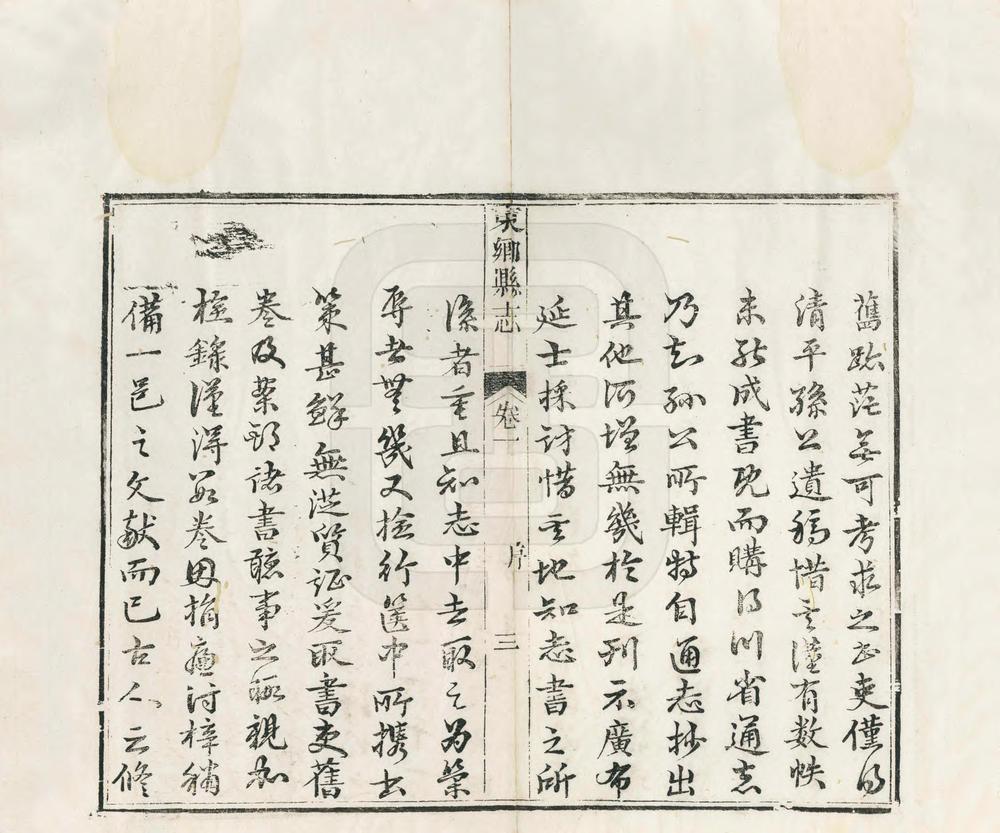 舊跡茫無可考求之書吏僅得
清平孫公遺稿惜其僅有數帙
未能成書既而購得川省通志
乃知孫公所輯特自通志抄出
其他所增無幾於是刊示廣布
延士採訪惜其地知志書之所
東鄉縣志
卷一
序
三
係者重且知志中去取之為榮
辱者無幾又捡行篋中所携古
策甚鮮無從質証爰取書吏舊
卷及案頭諸書聽事之暇親加
檢錄僅得四卷因捐廉付梓稍
備一邑之文獻而已古人云修